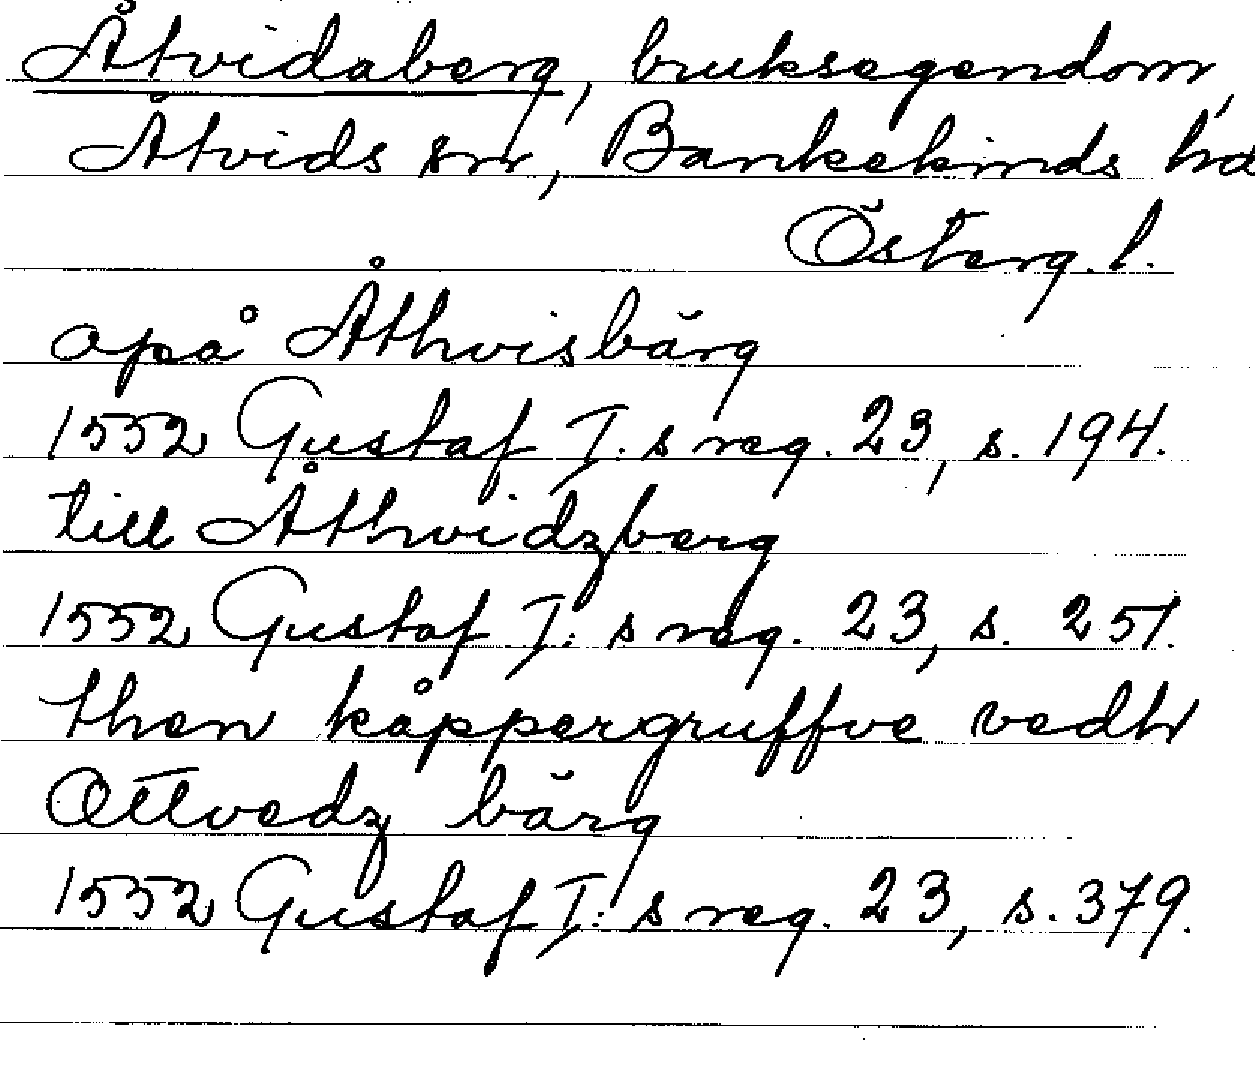 Åtvidaberg, bruksegendom,
Åtvids sn, Bankekinds hd
Österg. l.
opå Åthvisbärg
1552 Gustaf I:s reg. 23, s. 194.
till Åthvidzberg
1552 Gustaf I:s reg. 23, s. 251.
then kåppergruffve vedh
Ottvedz bärg
1552 Gustaf I:s reg. 23, s. 379.